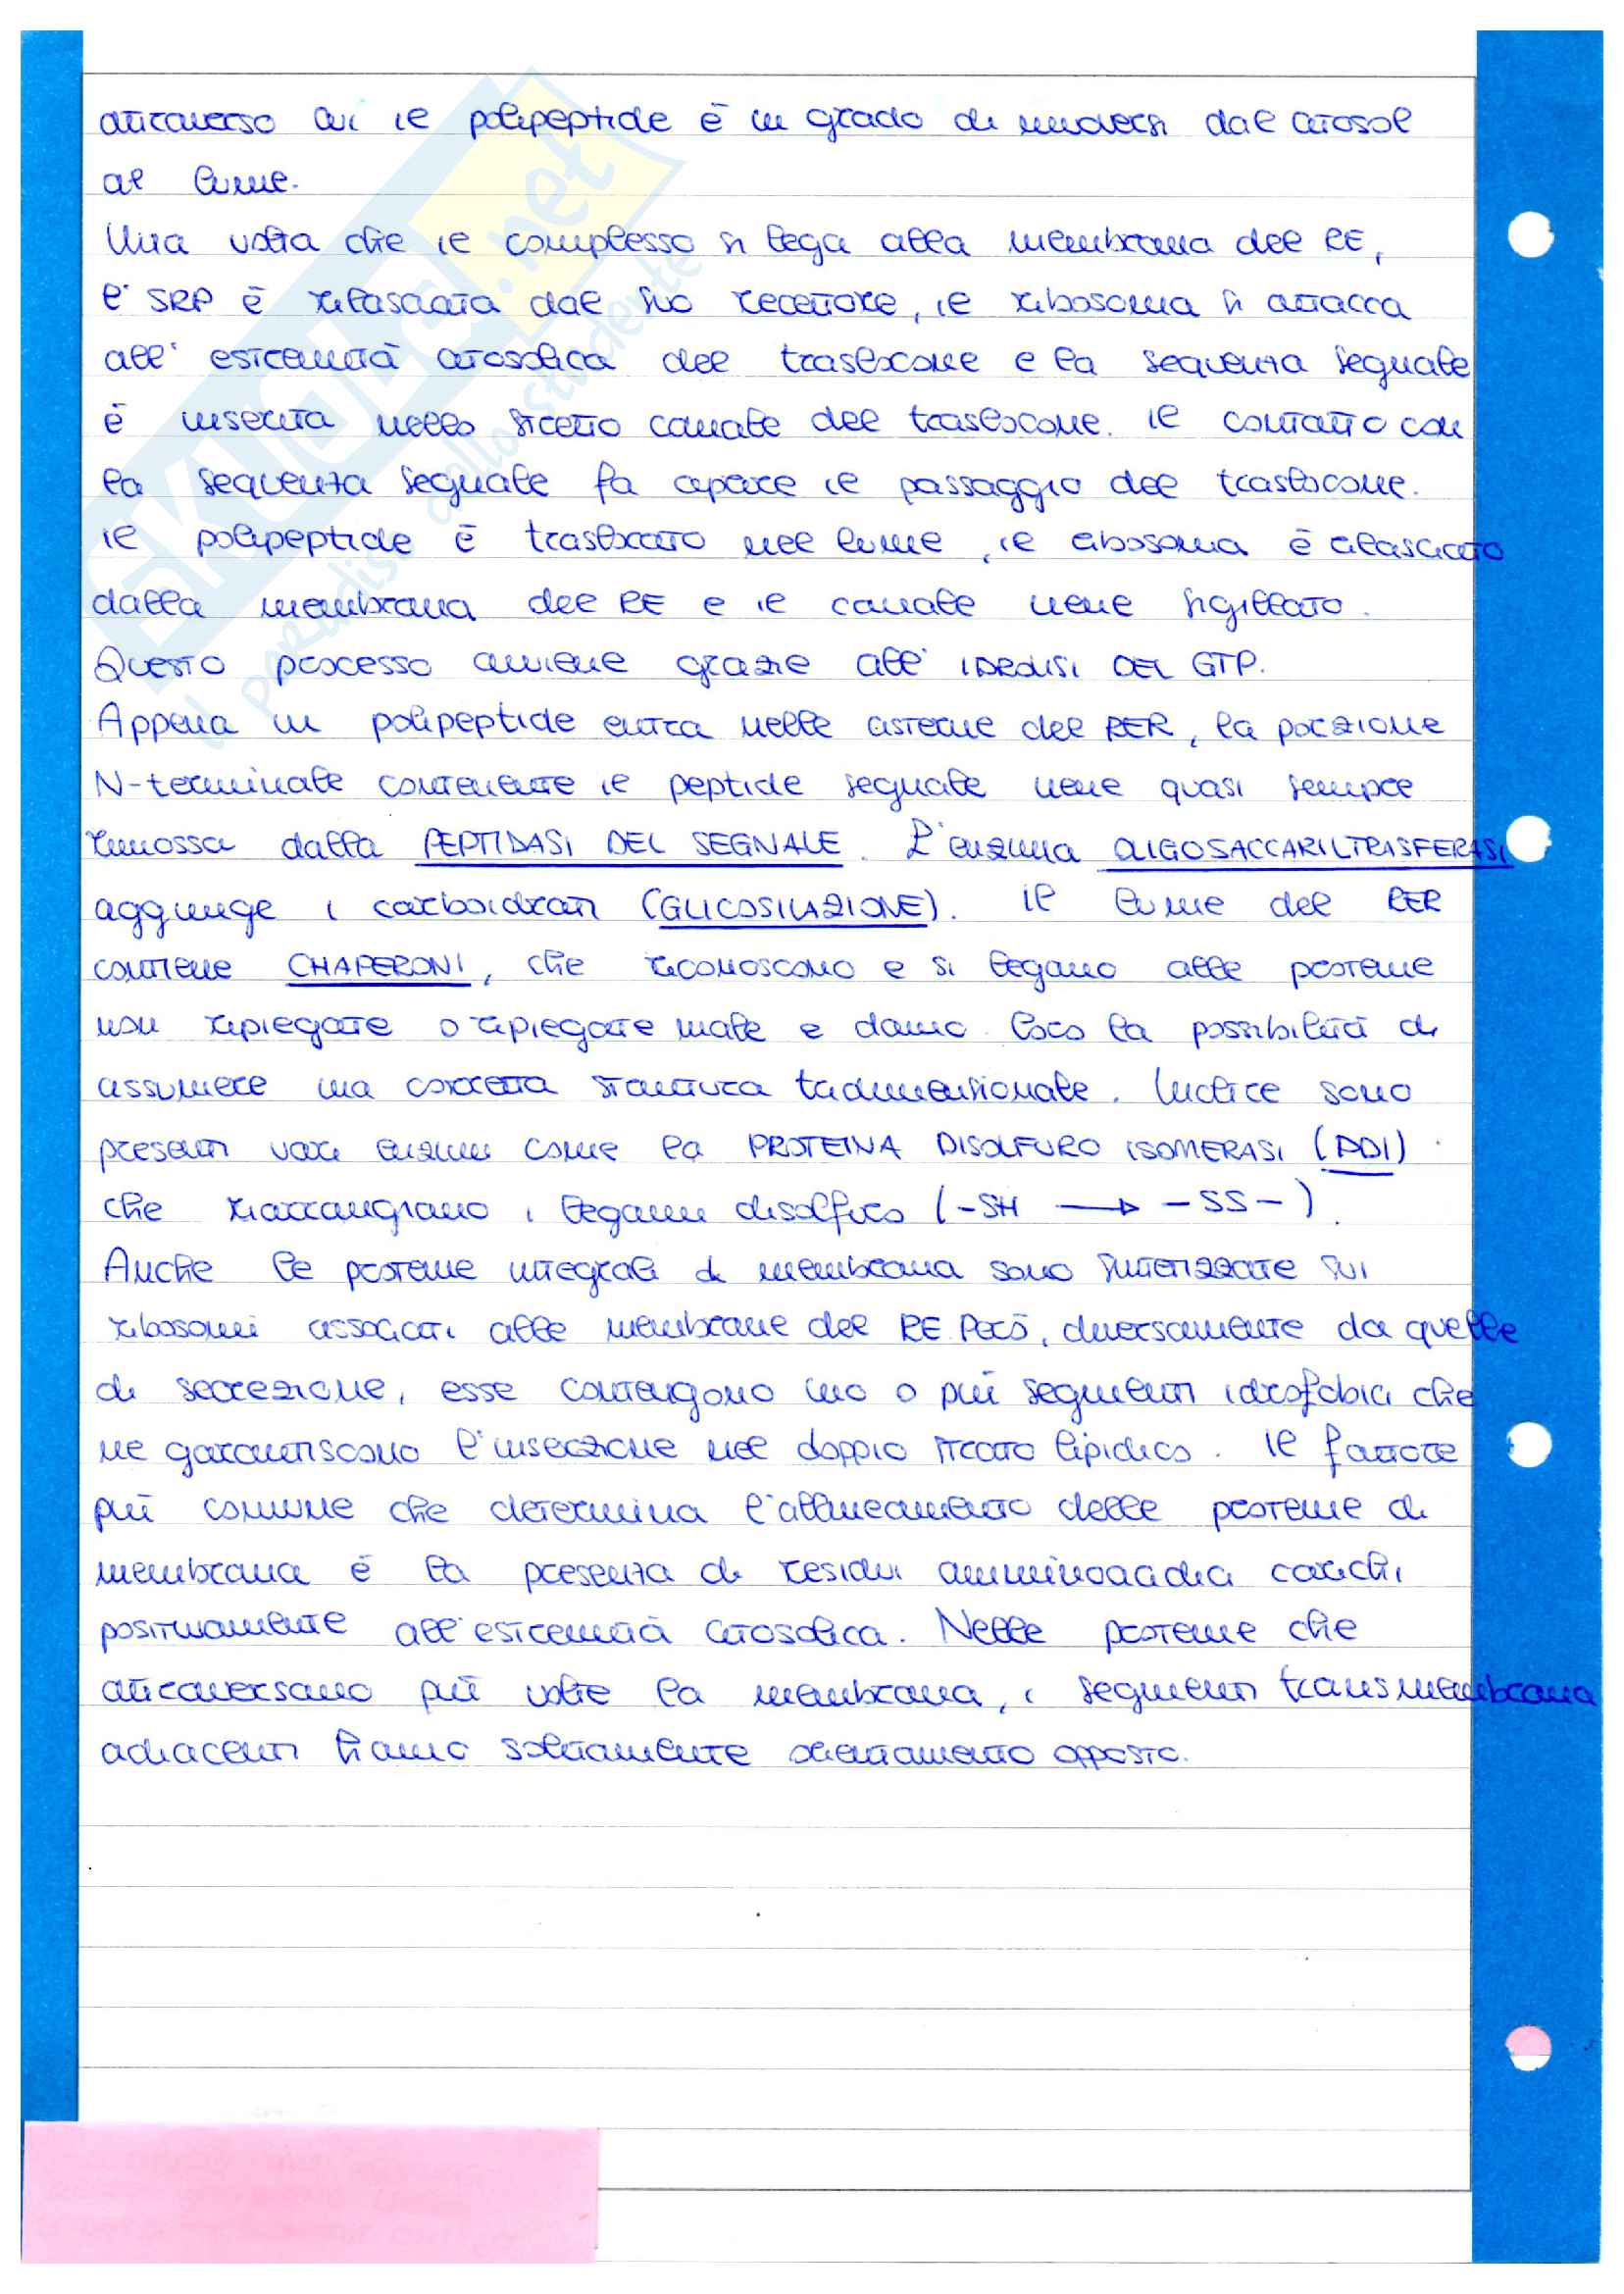 attraverso cui il polipeptide è in grado di muoversi dal citosol
al lume.
Una volta che il complesso si lega alla membrana del RE,
l'SRP è rilasciata dal suo recettore, il ribosoma si attacca
all'estremità citosolica del traslocone e la sequenza segnale
è inserita nello stretto canale del traslocone. Il contatto con
la sequenza segnale fa aprire il passaggio del traslocone.
Il polipeptide è traslocato nel lume, il ribosoma è rilasciato
dalla membrana del RE e il canale viene sigillato.
Questo processo avviene grazie all'IDROLISI DEL GTP.
Appena un polipeptide entra nelle cisterne del RER, la porzione
N-terminale contenente il peptide segnale viene quasi sempre
rimossa dalla PEPTIDASI DEL SEGNALE. L'enzima OLIGOSACCARILTRASFERASI
aggiunge i carboidrati (GLICOSILAZIONE). Il lume del RER
contiene CHAPERONI, che riconoscono e si legano alle proteine
non ripiegate o ripiegate male e danno loro la possibilità di
assumere una corretta struttura tridimensionale. Inoltre sono
presenti vari enzimi come la PROTEINA DISOLFURO ISOMERASI (PDI)
che riarrangiano i legami disolfuro (-SH → -SS-).
Anche le proteine integrali di membrana sono sintetizzate sui
ribosomi associati alle membrane del RE. Però, diversamente da quelle
di secrezione, esse contengono uno o più segmenti idrofobici che
ne garantiscono l'inserzione nel doppio strato lipidico. Il fattore
più comune che determina l'allineamento delle proteine di
membrana è la presenza di residui amminoacidici carichi
positivamente all'estremità citosolica. Nelle proteine che
attraversano più volte la membrana, i segmenti transmembrana
adiacenti hanno solitamente orientamento opposto.
SKUOLA.net
il paradiso dello studente